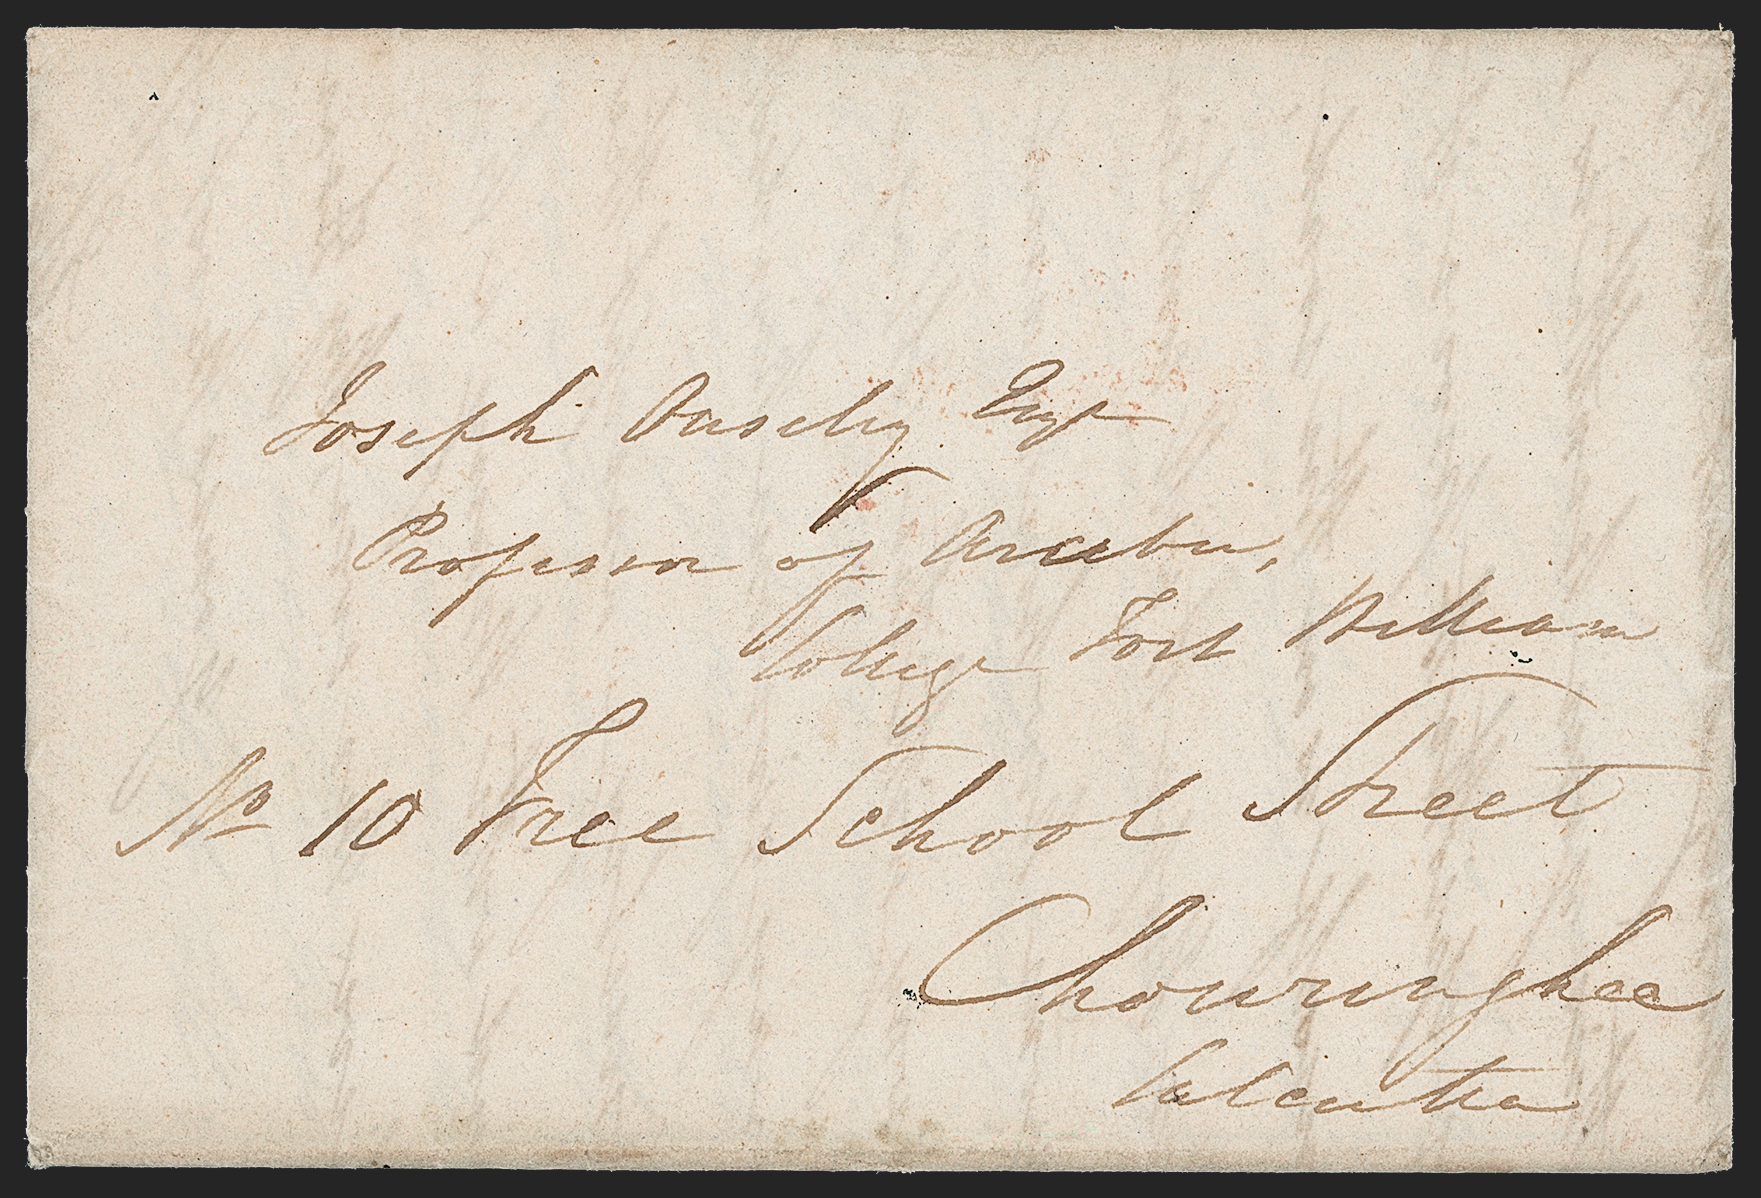 Joseph Ouseley Esqr
Professor of Arabic,
College Fort William
No 10 Free School Street
Chouringhee
Calcutta